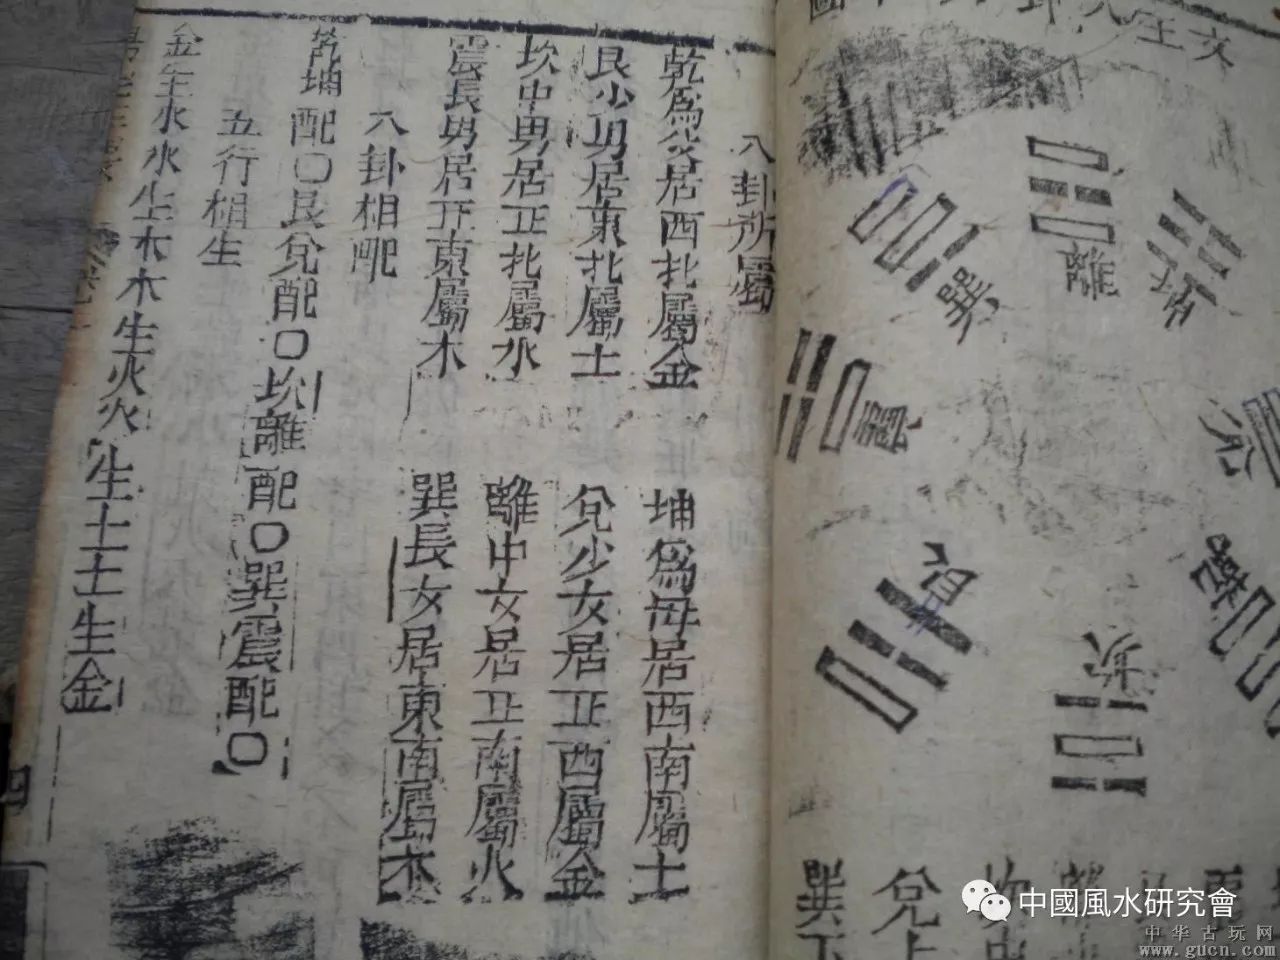 文王八卦
巽
離
坤
震
兌
艮
坎
乾
巽下
兌上
八卦所屬
乾為父居西北屬金
坤為母居西南屬土
艮少男居東北屬土
兌少女居正西屬金
坎中男居正北屬水
離中女居正南屬火
震長男居正東屬木
巽長女居東南屬木
八卦相配
乾坤配〇艮兌配〇坎離配〇巽震配〇
五行相生
金生水水生木木生火火生土土生金
四
中國風水研究會
中华古玩网
www.gucn.com